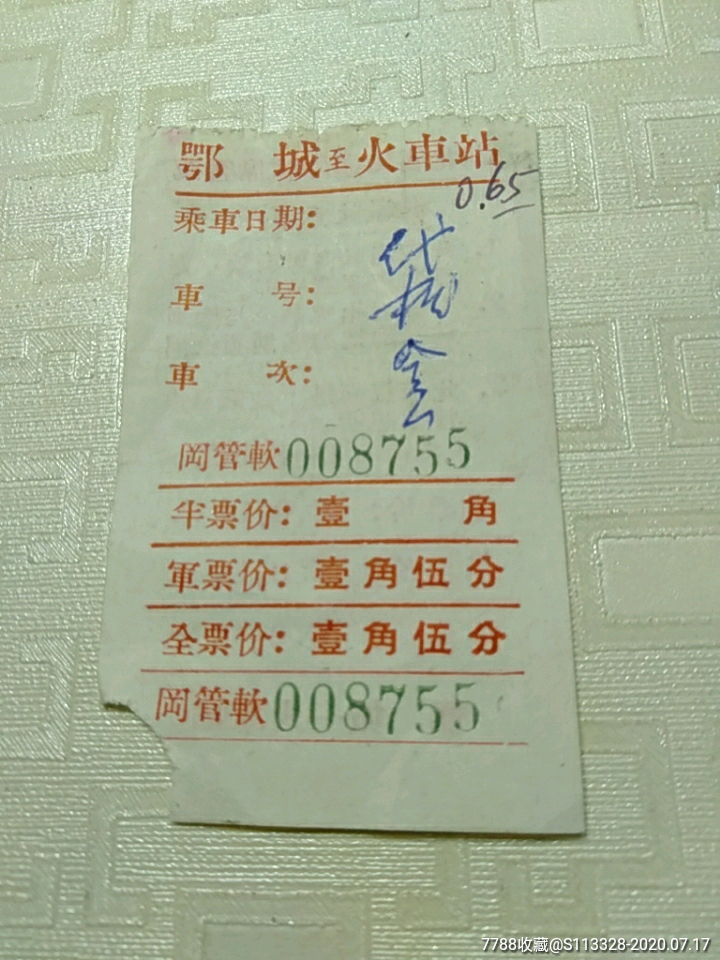 鄂城至火車站
0.65
乘車日期:
車号:
車次:
岡管軟008755
半票价:壹角
軍票价:壹角伍分
全票价:壹角伍分
岡管軟008755
7788收藏@S113328-2020.07.17